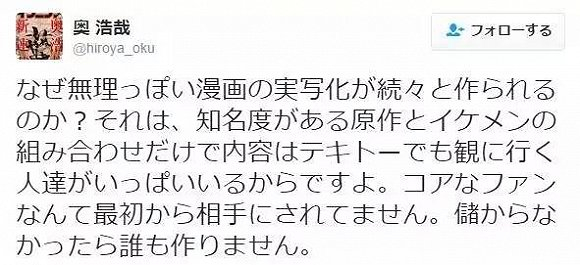 奥 浩哉
@hiroya_oku
フォローする
なぜ無理っぽい漫画の実写化が続々と作られる
のか？それは、知名度がある原作とイケメンの
組み合わせだけで内容はテキトーでも観に行く
人達がいっぱいいるからですよ。コアなファン
なんて最初から相手にされてません。儲からな
かったら誰も作りません。